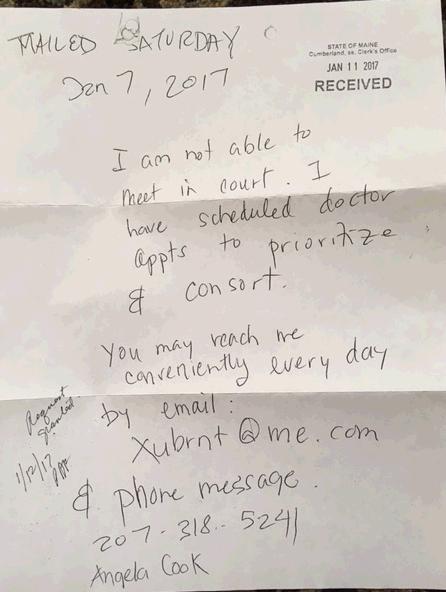 MAILED SATURDAY
Jan 7, 2017
STATE OF MAINE
Cumberland, ss, Clerk's Office
JAN 11 2017
RECEIVED
I am not able to
meet in court. I
have scheduled doctor
appts to prioritize
& consort.
You may reach me
conveniently every day
by email:
Xubrnt@me.com
& phone message.
207-318-5241
Angela Cook
Request
Granted
1/12/17